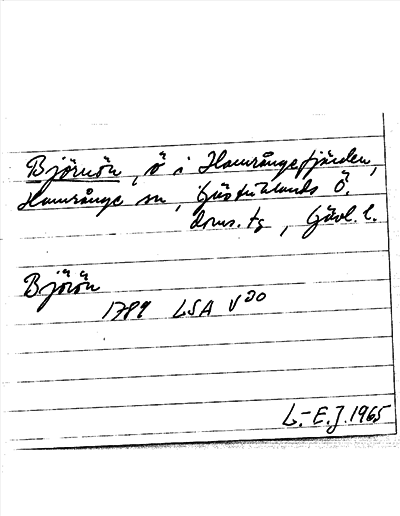 Björnön, ö i Hamrångefjärden,
Hamrånge sn, Gästriklands Ö.
doms. tg, Gävl. l.
Björön
1789 LSA V20
L.-E.J. 1965